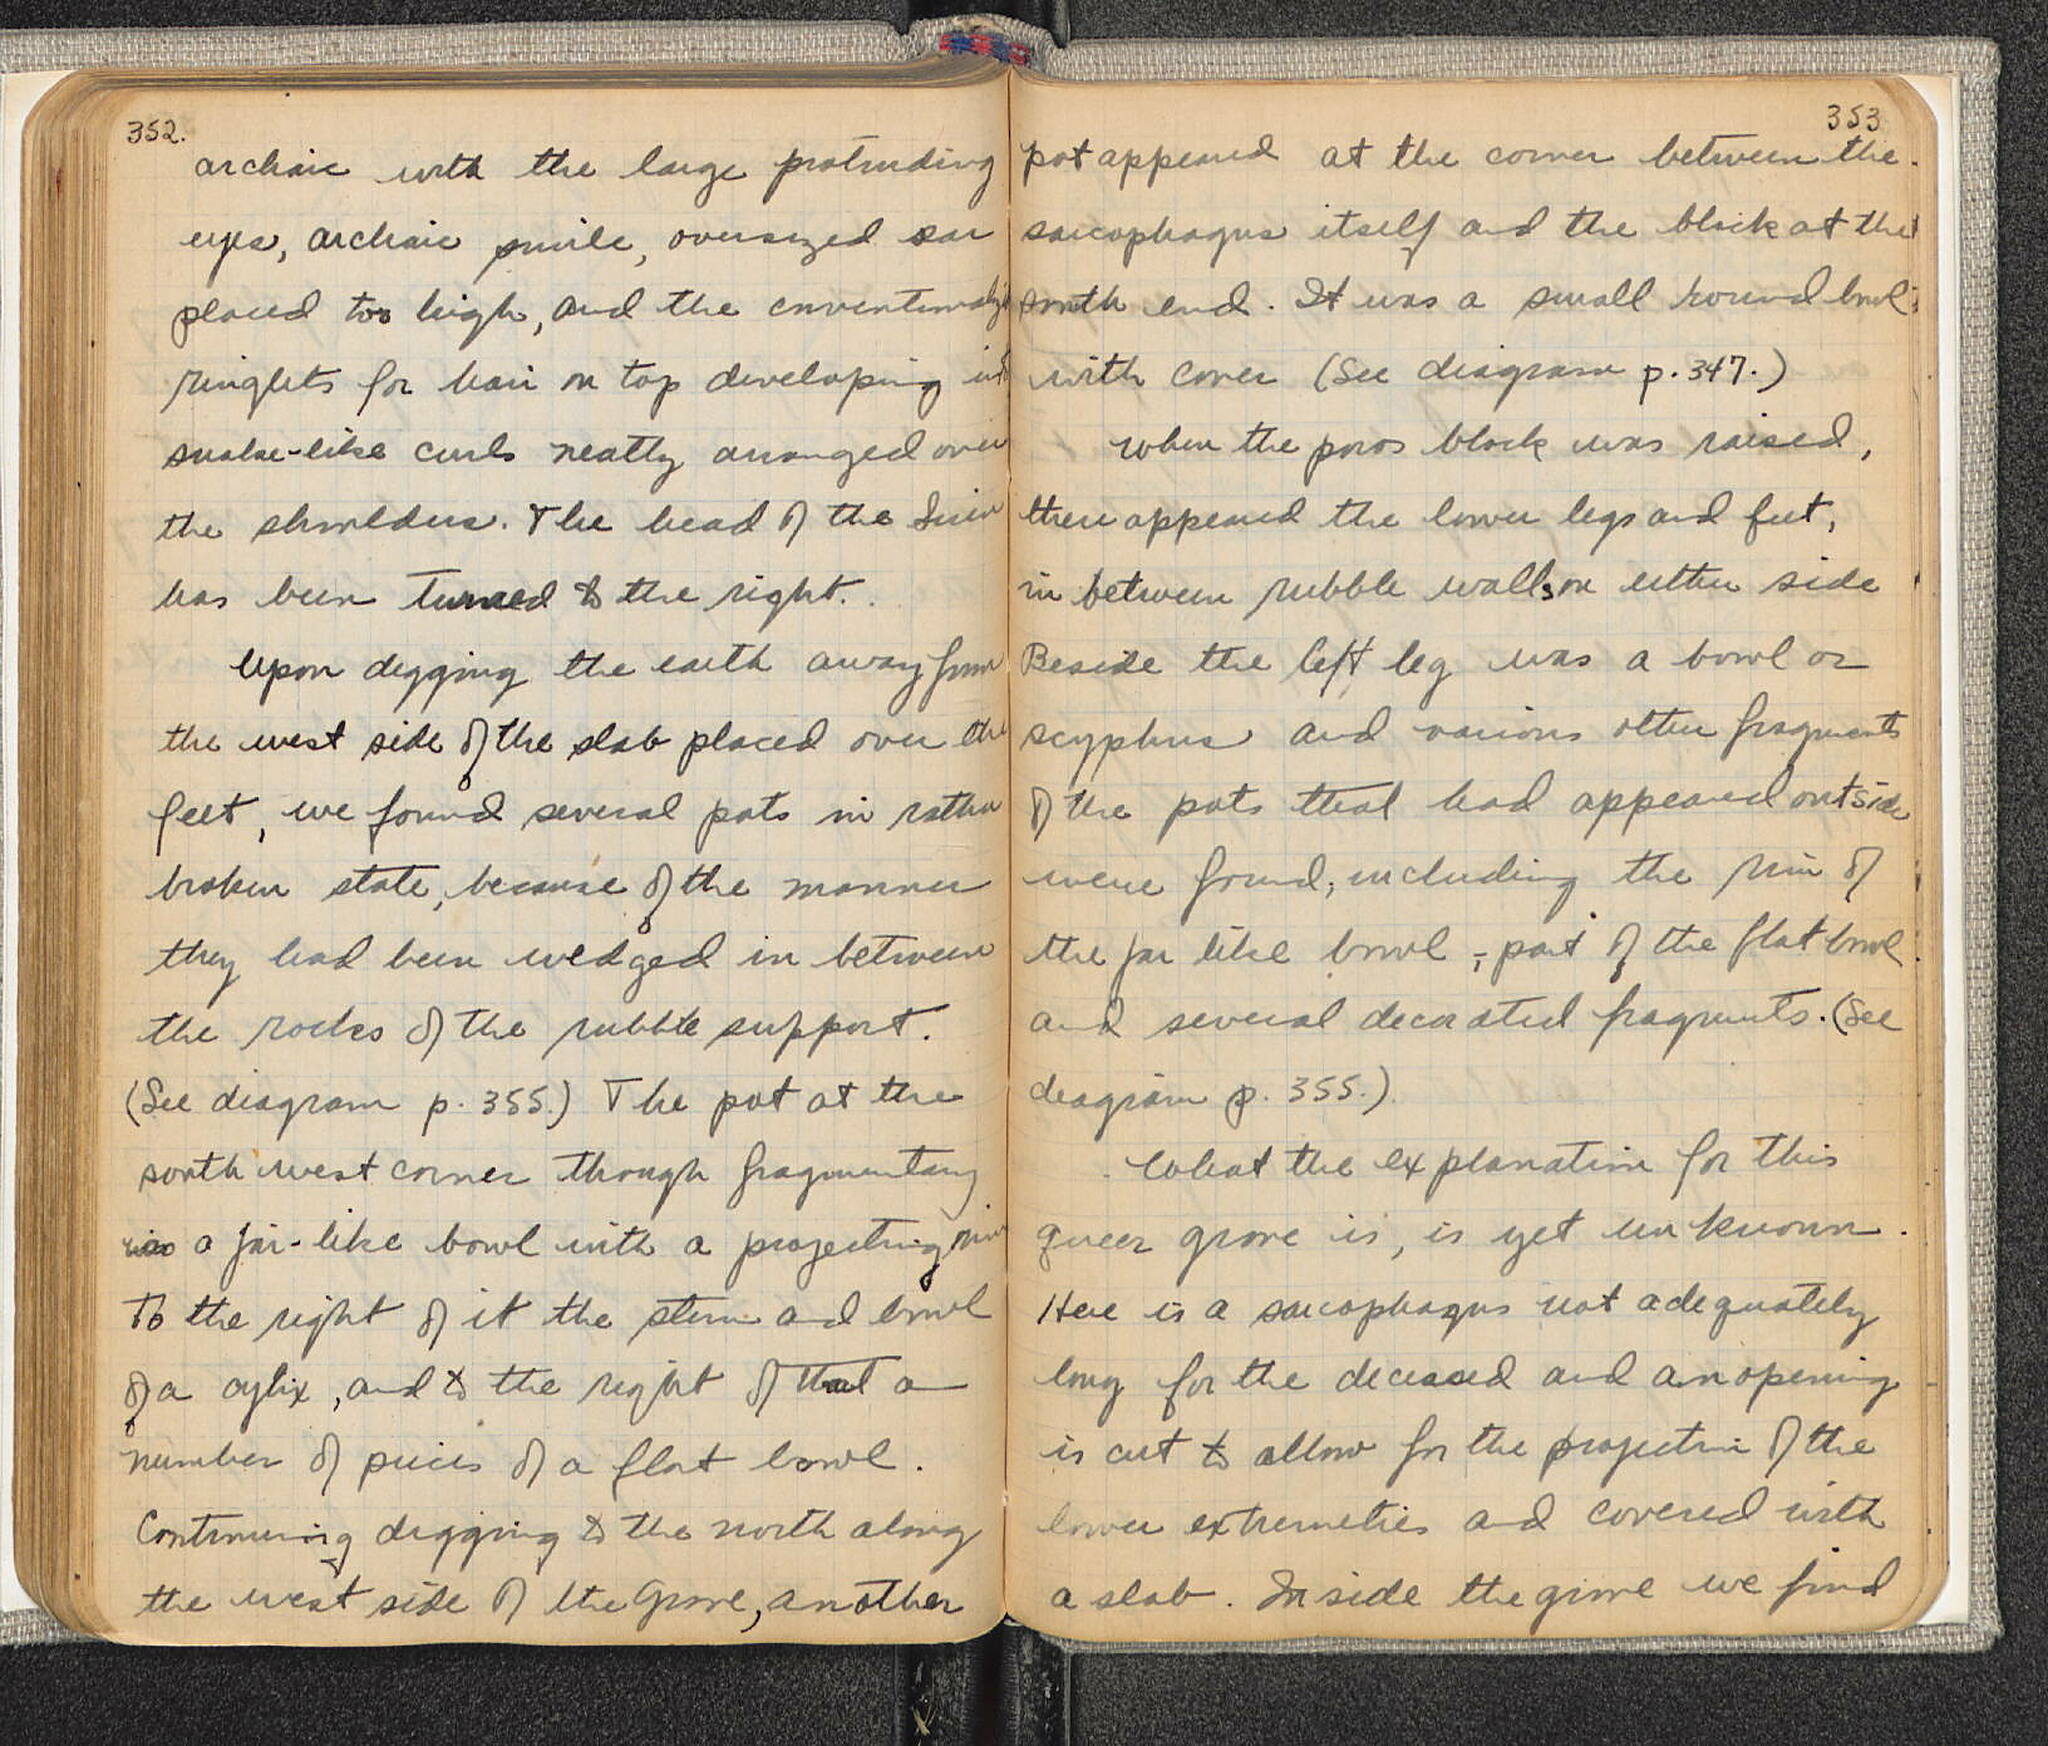 352.
archaic with the large protruding
eyes, archaic smile, oversized ear
placed too high, and the
ringlets for hair on top developing into
snake-like curls neatly arranged over
the shoulders. The head of the Siren
has been turned to the right.
Upon digging the earth away from
the west side of the slab placed over the
feet, we found several pots in rather
broken state, because of the manner
they had been wedged in between
the rocks of the rubble support.
(See diagram p. 355.) The pot at the
south west corner though fragmentary
was a jar-like bowl with a projecting rim
To the right of it the stem and bowl
of a cylix, and to the right of that a
number of pieces of a flat bowl.
Continuing digging to the north along
the west side of the grave, another
353
pot appeared at the corner between the
sarcophagus itself and the block at the
south end. It was a small round bowl
with cover (See diagram p. 347.)
When the poros block was raised,
there appeared the lower legs and feet,
in between rubble walls on either side
Beside the left leg was a bowl or
scyphus and various other fragments
of the pots that had appeared outside
were found, including the rim of
the jar like bowl, part of the flat bowl
and several decorated fragments. (See
diagram p. 355.)
What the explanation for this
queer grave is, is yet unknown.
Here is a sarcophagus not adequately
long for the deceased and an opening
is cut to allow for the projection of the
lower extremeties and covered with
a slab. Inside the grave we find